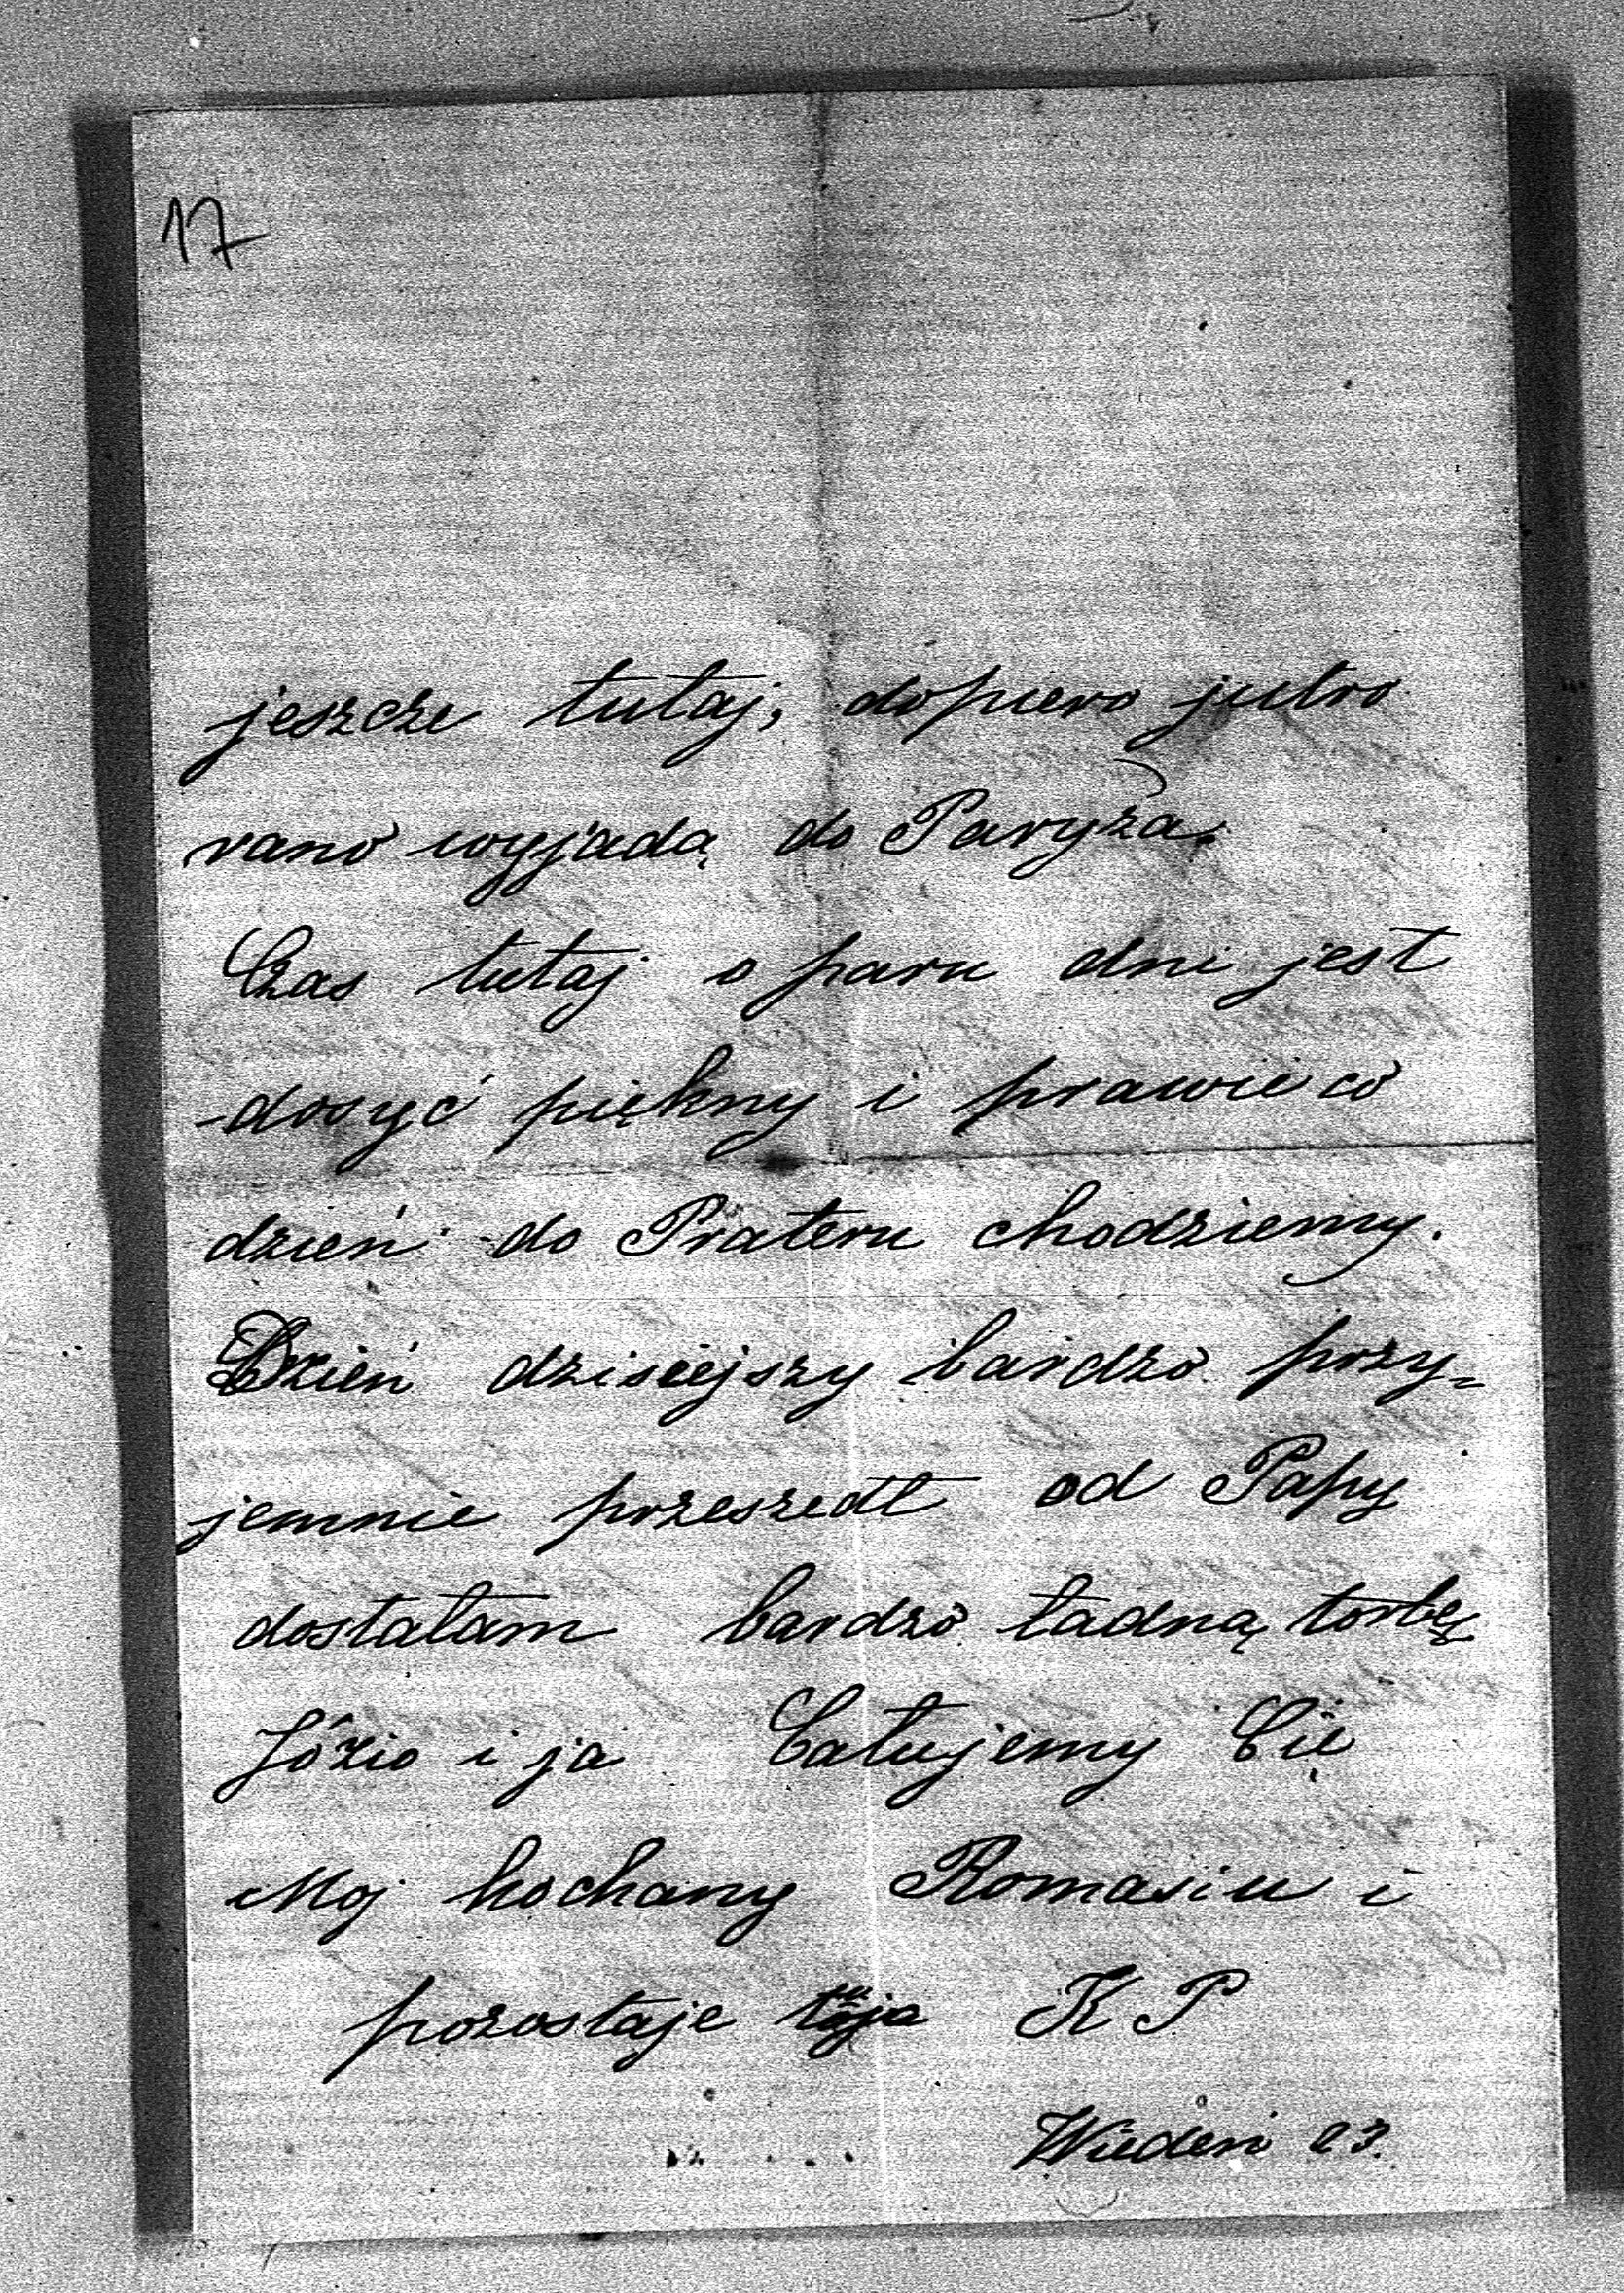 17
jeszcze tutaj, dopiero jutro
rano wyjadą do Paryża.
Czas tutaj o paru dni jest
dosyć piękny i prawie co
dzień do Prateru chodziemy.
Dzień dzisiejszy bardzo przy-
jemnie przeszedł od Papy
dostałam bardzo ładną torbę
Józio i ja Całujemy Cię
Moj kochany Romasiu i
pozostaje K P
Wiedeń 23.